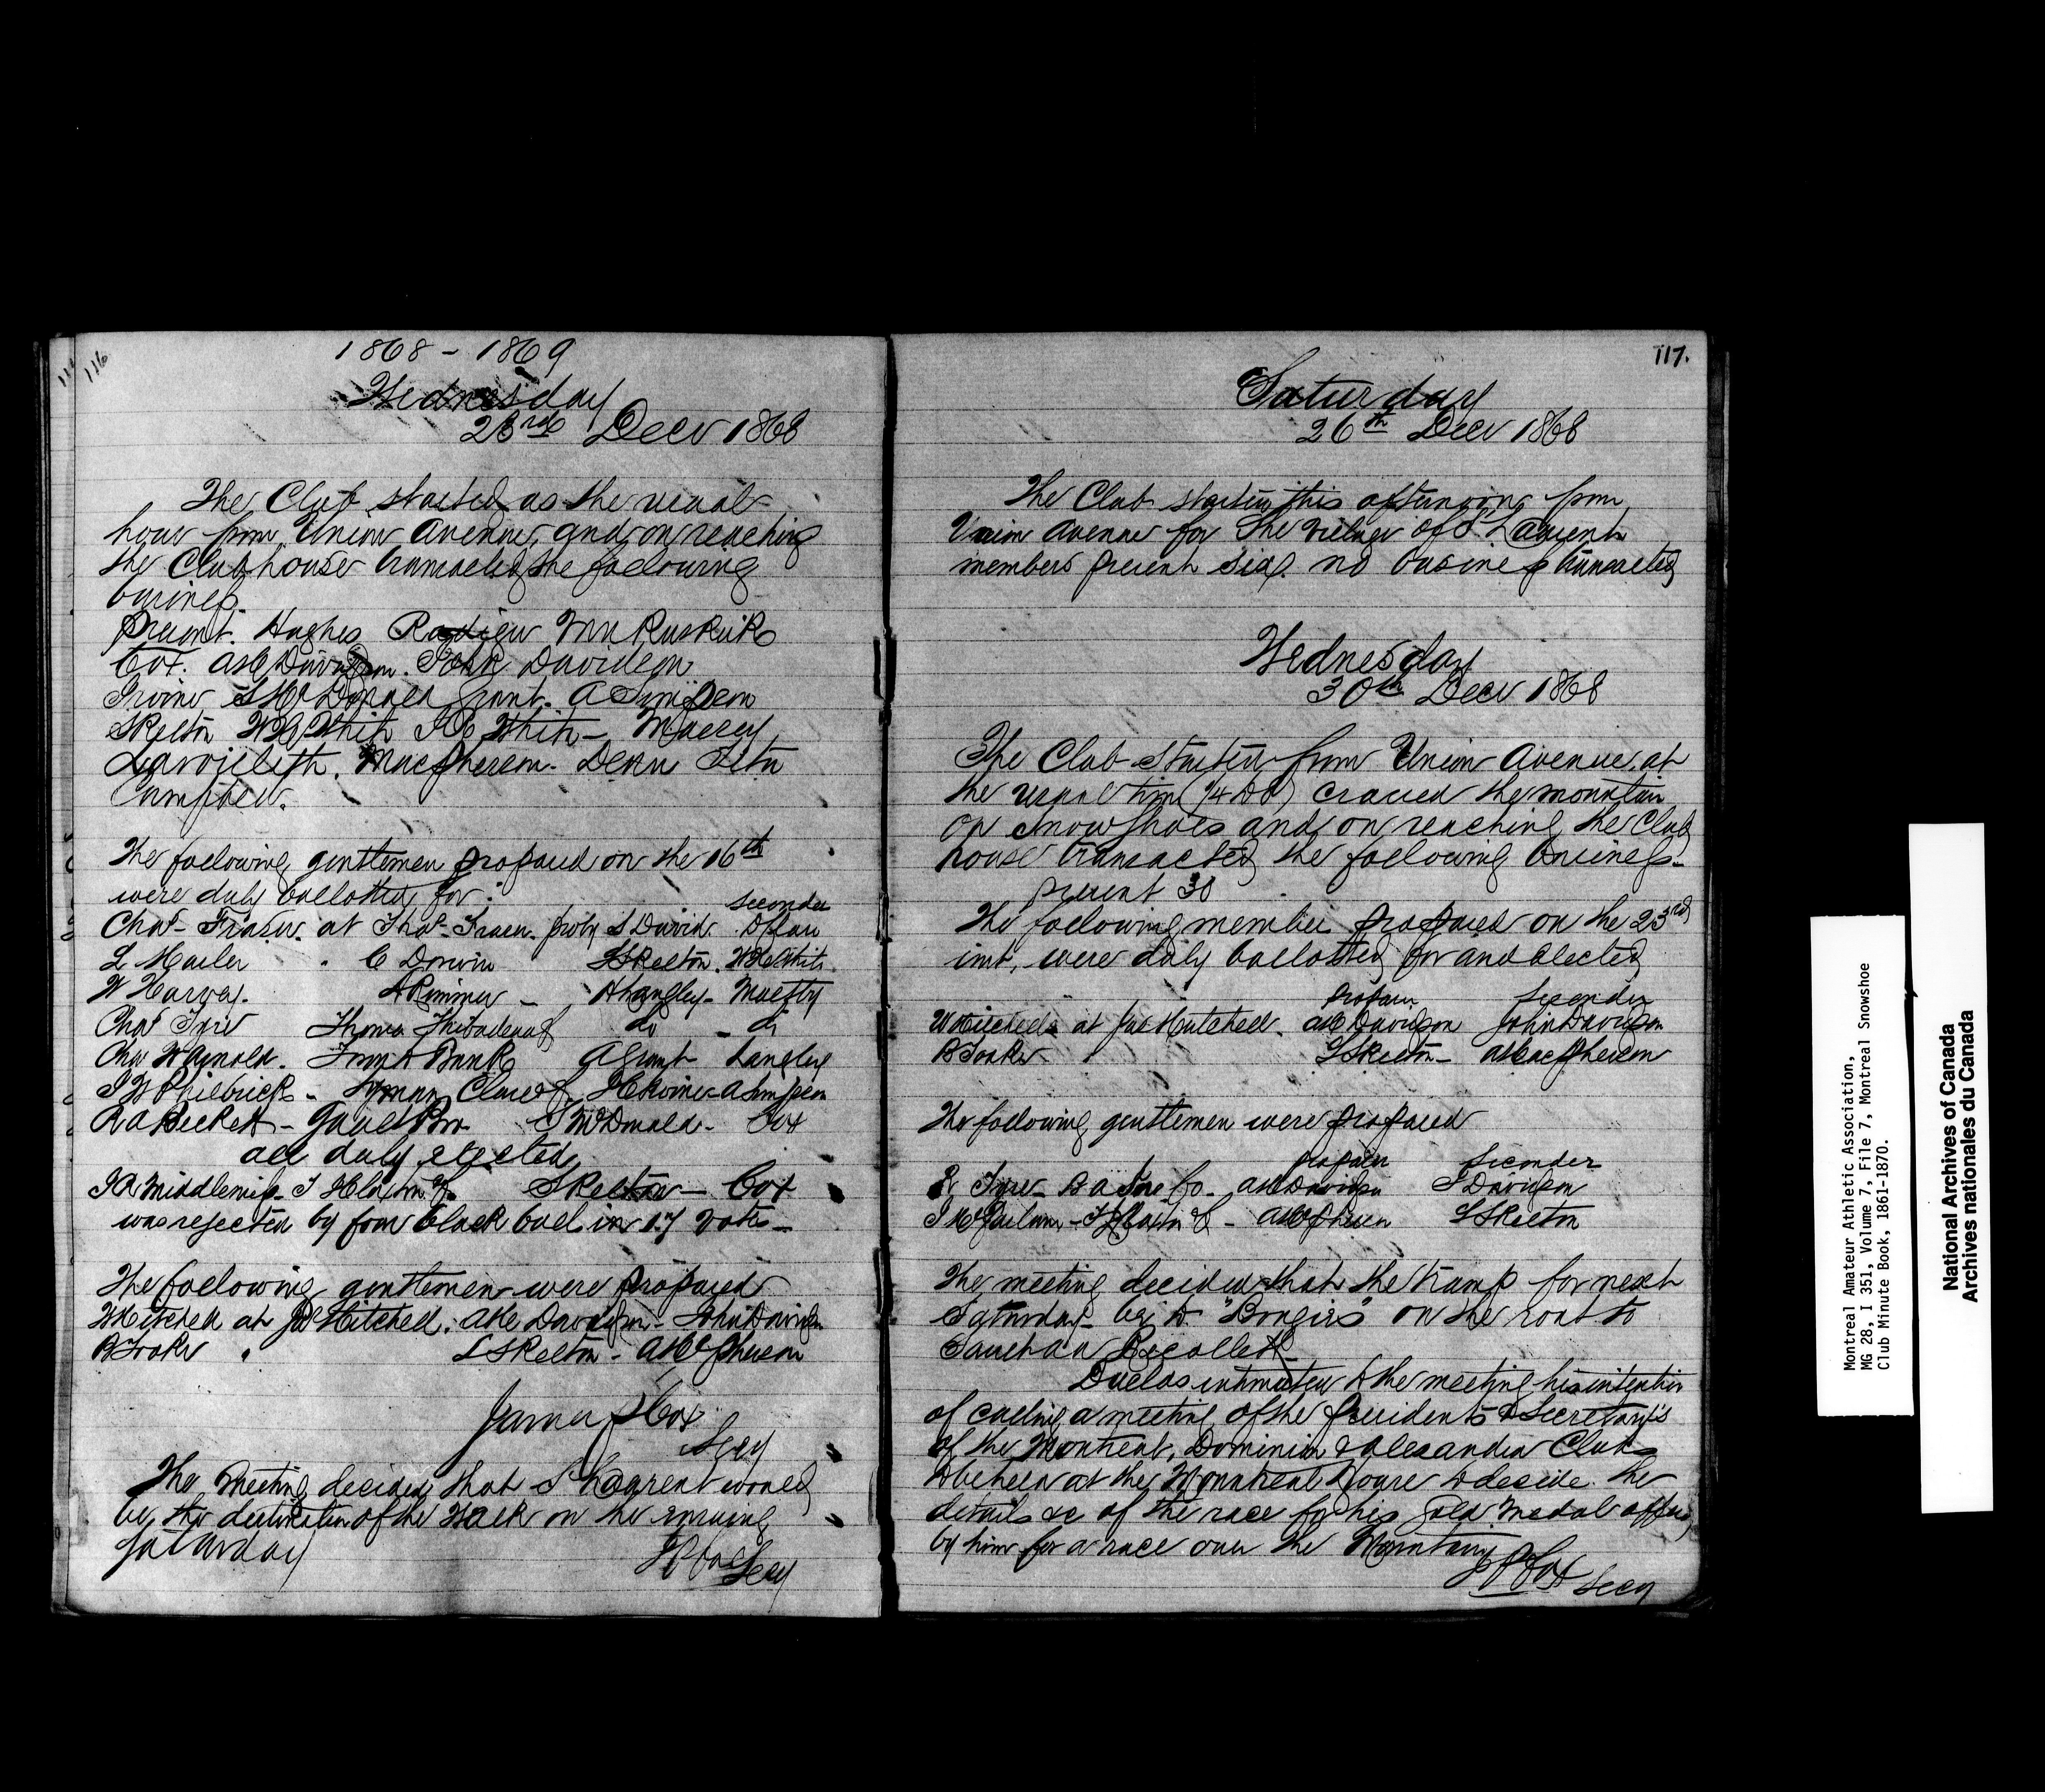 116
1868 - 1869
Wednesday
23rd Decr 1868
The Club started as the usual
hour from Union Avenue, and on reaching
the Club house transacted the following
business.
present. Hughes Radiger Wm Ruskirk
Cox. Davidson. John Davidson
Irvine S McDonald Grant. A Simpson
Skelton White White - Massey
Macpherson. Dean
Campbell.
The following gentlemen proposed on the 16th
were duly ballotted for:
seconder
Chas Fraser. at Thos Fraser. pro by S David.
L Marler " C Dorwin S Skelton. White
W Harvey. A Rimmer - A Langley -
Chas Tyre Thomas Thibadeau do - do
Chas W Arnold. Frank Bank A Grant Langley
Philbrick - Lyman Clare & A Simpson
R A Becket - S McDonald - Cox
all duly elected
J R Middlemis - S Skelton - Cox
was rejected by four black ball in 17 votes -
The following gentlemen were proposed
W Mitchell at Mitchell. Davidson - John Davidson
B Tooke " S Skelton - A McPherson
James P Cox
Secy
The Meeting decided that St Laurent would
be the destination of the Walk on the ensuing
Saturday
J P Cox
Secy
117.
Saturday
26th Decr 1868
The Club started this afternoon from
Union Avenue for The Village of St Laurent
members present six. no business transacted
Wednesday
30th Decr 1868
The Club Started from Union Avenue. at
the usual time crossed the mountain
on Snow Shoes and on reaching the Club
house transacted the following business -
present 30
The following members proposed on the 23rd
inst, were duly ballotted for and elected
proposer Seconder
W Mitchell at Jas Mitchell. Davidson John Davidson
B Tooke " S Skelton - A Macpherson
The following gentlemen were proposed
proposer Seconder
R Tyre - Co - Davidson J Davidson
S Skelton
The meeting decided that the tramp for next
Saturday be to "Bougies" on the road to
Sault au Recollet
Duclos intimated to the meeting his intention
of calling a meeting of the Presidents & Secretary's
of the Montreal, Dominion & Alexandra Clubs
to be held at the Montreal House to decide the
details &c of the race for his gold medal offered
by him for a race over the Mountain
J P Cox Secy
Montreal Amateur Athletic Association,
MG 28, I 351, Volume 7, File 7, Montreal Snowshoe
Club Minute Book, 1861-1870.
National Archives of Canada
Archives nationales du Canada